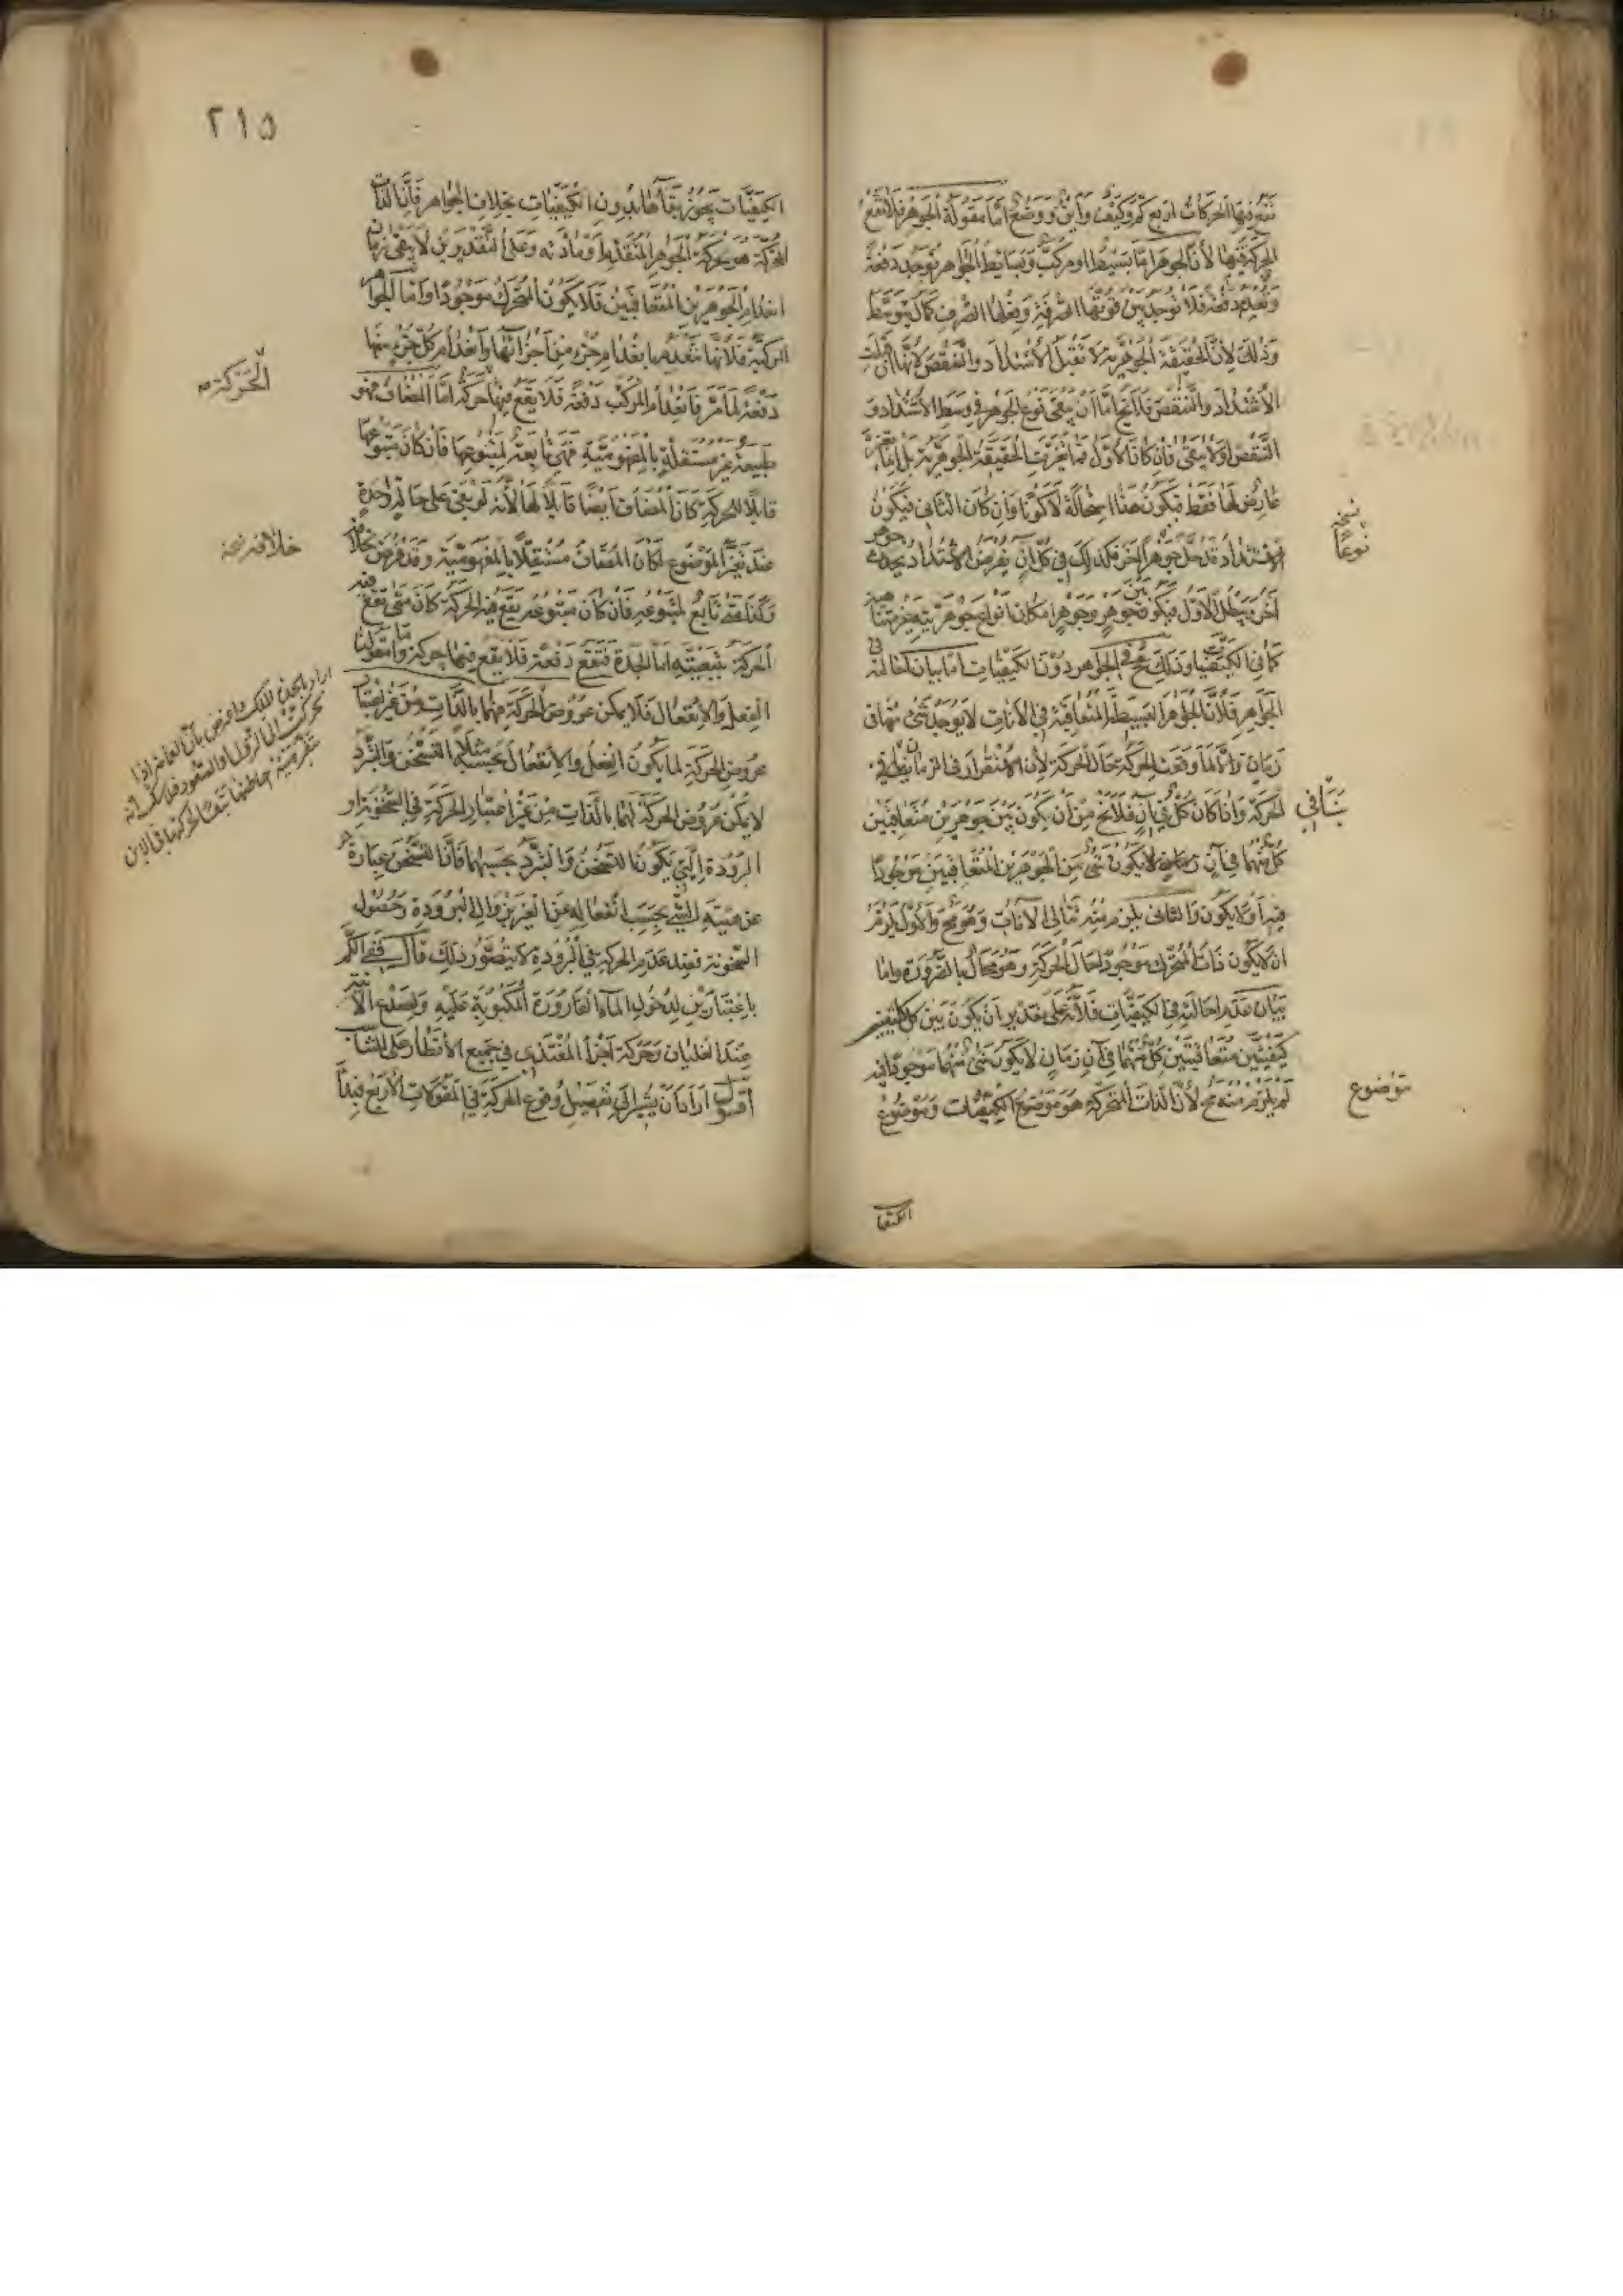 تقع فيها الحركات اربع كم وكيف واين ووضع اما مقولة الجوهر فلا تقع
الحركة فيها لأن الجوهر اما بسيط او مركب وبسايط الجواهر توجد دفعة
وتعدم دفعة فلا توجد بين قوتها الصرفة وفعلها الصرف كمال متوسط
وذلك لأن الحقيقة الجوهرية لا تقبل الاشتداد والتنقص لأنها ان قبلت
الاشتداد والتنقص فلا يخ اما أن يبقى نوع الجوهر في وسط الاشتداد و
التنقص او لا يبقى فان كان الأول فما تغيرت الحقيقة الجوهرية بل انما تغير
عارض لها فقط فيكون هذا استحالة لا كونا وان كان الثاني فيكون
الاشتداد قد حل جوهرا آخر فكذلك في كل آن يفرض الاشتداد يحدث جوهر
آخر يبطل الأول فيكون بين جوهر وجوهر امكان انواع جوهرية غير متناهية
كما في الكيفيات وذلك مح في الجواهر دون الكيفيات اما بيان احالته في
الجواهر فلأن الجواهر البسيطة المتعاقبة في الآنات لا يوجد شئ منها في
زمان والا لما وقعت الحركة حال الحركة لأن الاستقرار في الزمان ينافي
الحركة واذا كان كل في آن فلا يخ من أن يكون بين جوهرين متعاقبين
كل منهما في آن زمان لا يكون شئ من الجوهرين المتعاقبين موجودا
فيه او لا يكون والثاني يلزم منه تتالي الآنات وهو مح والأول يلزم
ان لا يكون ذات المتحرك موجودا حال الحركة وهو محال بالضرورة واما
بيان عدم احالته في الكيفيات فلأنه على تقدير أن يكون بين كل
كيفيتين متعاقبتين كل منهما في آن زمان لا يكون شئ منهما موجودا فيه
لم يلزم منه مح لأن الذات المتحركة هو موضوع الكيفيات وموضوع
نسخة
نوعا
ينافي
موضوع
الكيفيات
٢١٥
الكيفيات يجوز بقاؤها بدون الكيفيات بخلاف الجواهر فان الذات
المتحركة هو حركة الجواهر وعلى التقديرين لا يبقى زمان
انعدام الجوهرين المتعاقبين فلا يكون المتحرك موجودا واما الجواهر
المركبة فلأنها تنعدم بانعدام جزء من اجزائها وانعدام كل جزء منها
دفعة لما مر فانعدام المركب دفعة فلا يقع فيها حركة اما المضاف فهو
طبيعة غير مستقلة بالمفهومية فهي تابعة لمتبوعها فان كان متبوعها
قابلا للحركة كان المضاف ايضا قابلا لها لأنه لو بقي على حالة واحدة
عند تغير الموضوع لكان المضاف مستقلا بالمفهومية وقد فرض خلافه
وكذا متى تابع لمتبوعه فان كان متبوعه يقع فيه الحركة كان متى تقع فيه
الحركة بتبعيته اما الجدة فتقع دفعة فلا يقع فيها حركة واما مقولتا
الفعل والانفعال فلا يمكن عروض الحركة لهما بالذات من غير اعتبار
عروض الحركة لما يكون الفعل والانفعال بحسبه مثلا التسخن والتبرد
لا يمكن عروض الحركة لهما بالذات من غير اعتبار الحركة في السخونة او
البرودة التي يكون التسخن والتبرد بحسبهما فان التسخن عبارة
عن هيئة للشئ بحسب انفعاله عن الغير بزوال البرودة وحصول
السخونة فعند عدم الحركة في البرودة لا يتصور ذلك قال ففي الكم
باعتبارين لدخول الماء القارورة المكبوبة عليه وتصدع الآنية
عند الغليان وحركة اجزاء المغتذي في جميع الأقطار على التناسب
اقول اراد ان يشير الى تفصيل وقوع الحركة في المقولات الأربع فبدأ
الحركة
خلافه نسخة